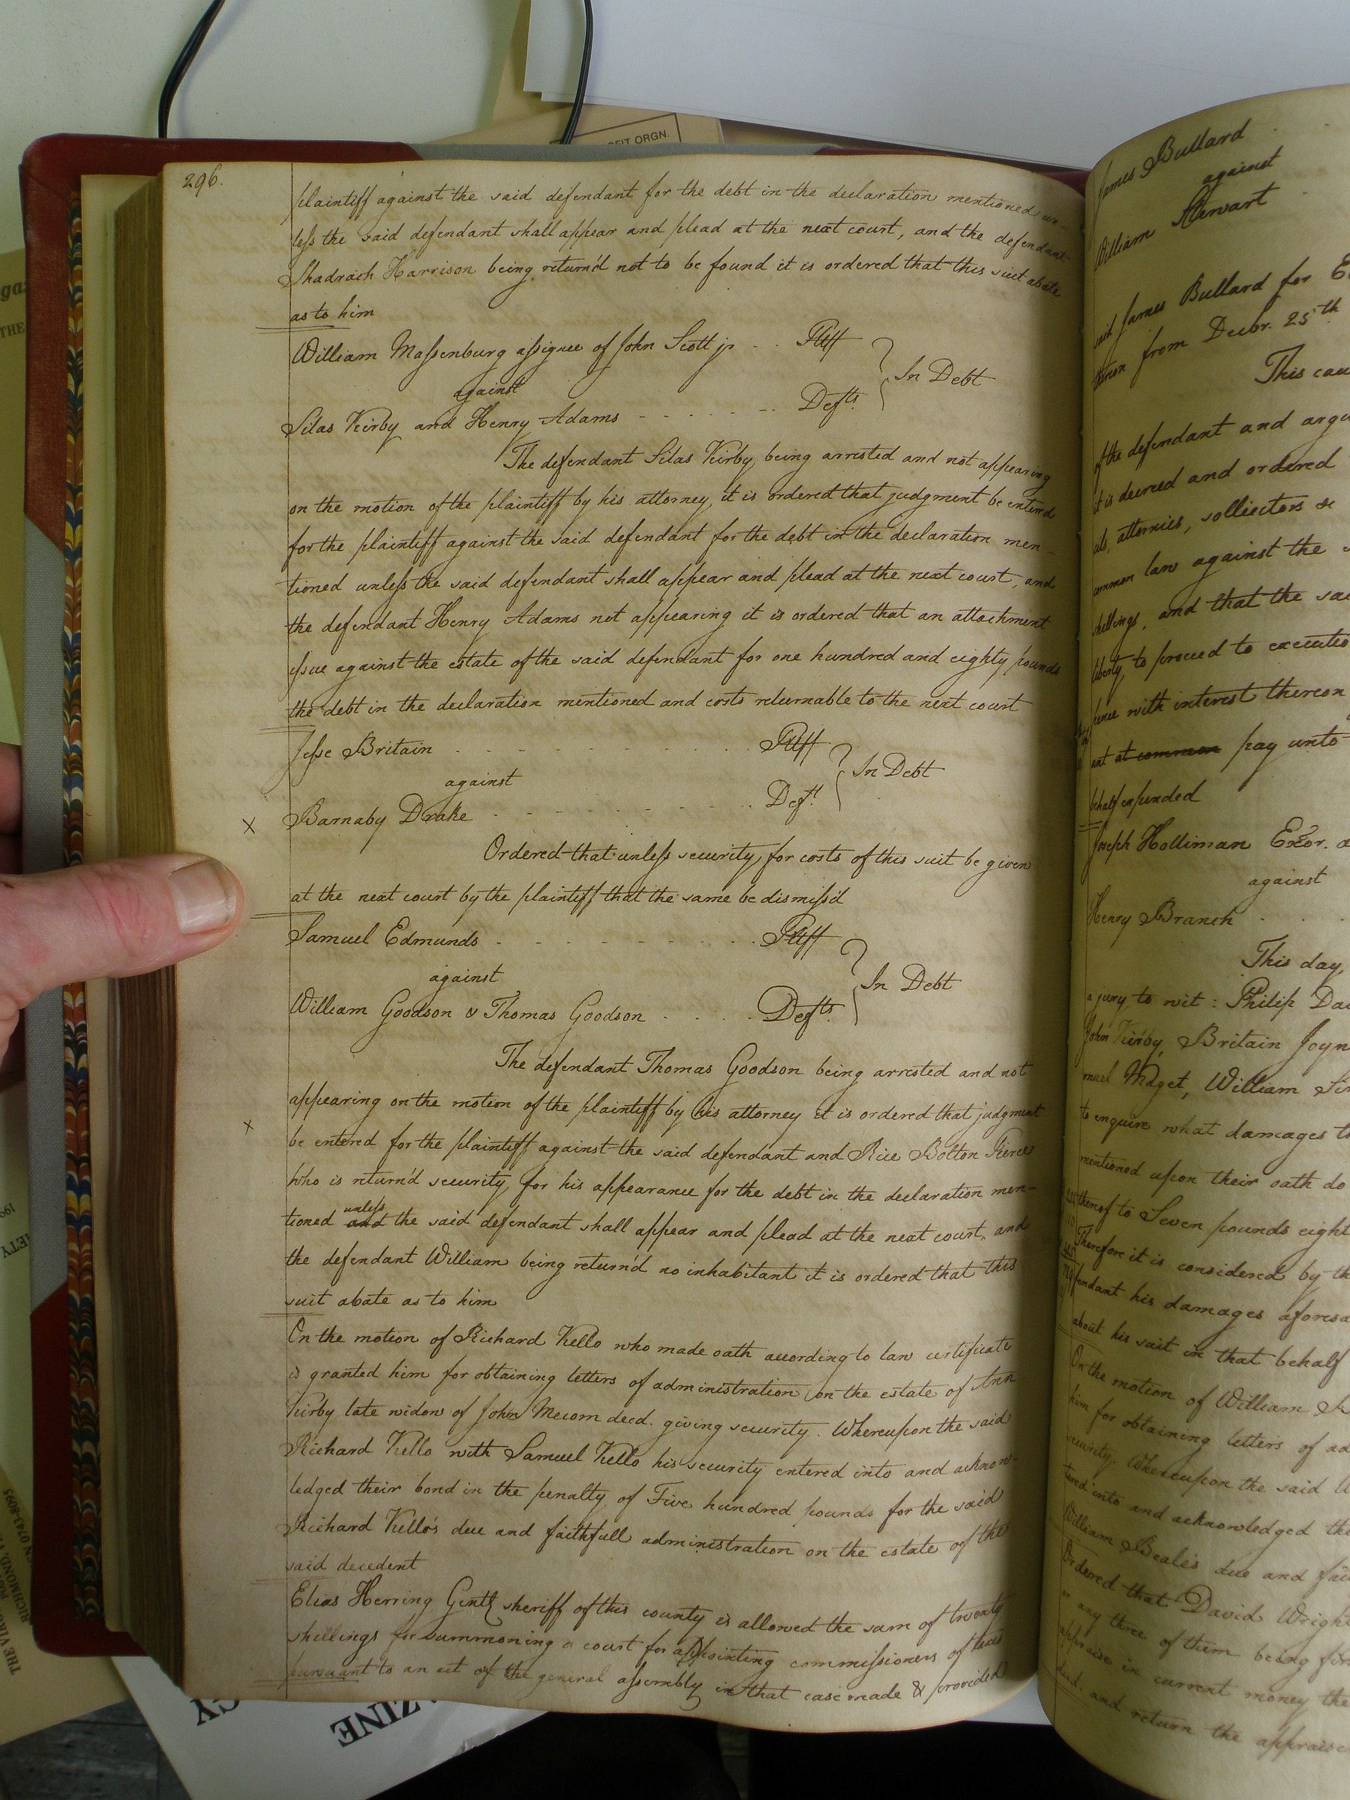 296.
plaintiff against the said defendant for the debt in the declaration mentioned un-
less the said defendant shall appear and plead at the next court, and the defendant
Shadrach Harrison being return'd not to be found it is ordered that this suit abate
as to him
William Massenburg assignee of John Scott jr . . Pltff
against
In Debt
Silas Kirby and Henry Adams - - - - - - Defts.
The defendant Silas Kirby being arrested and not appearing
on the motion of the plaintiff by his attorney, it is ordered that judgment be entered
for the plaintiff against the said defendant for the debt in the declaration men-
tioned unless the said defendant shall appear and plead at the next court, and
the defendant Henry Adams not appearing it is ordered that an attachment
issue against the estate of the said defendant for one hundred and eighty pounds
the debt in the declaration mentioned and costs returnable to the next court
Jesse Britain . . . . . . . . . Pltff
against
In Debt
x Barnaby Drake . . . . . . . . . Deft.
Ordered that unless security for costs of this suit be given
at the next court by the plaintiff that the same be dismiss'd
Samuel Edmunds . . . . . . . . . Pltff
against
In Debt
William Goodson & Thomas Goodson . . . . Defts.
The defendant Thomas Goodson being arrested and not
appearing on the motion of the plaintiff by his attorney it is ordered that judgment
x be entered for the plaintiff against the said defendant and Rice Bolton Pierce
who is return'd security for his appearance for the debt in the declaration men-
tioned and unless the said defendant shall appear and plead at the next court, and
the defendant William being return'd no inhabitant it is ordered that this
suit abate as to him
On the motion of Richard Kello who made oath according to law certificate
is granted him for obtaining letters of administration on the estate of Ann
Kirby late widow of John Mecom decd. giving security. Whereupon the said
Richard Kello with Samuel Kello his security entered into and acknow-
ledged their bond in the penalty of Five hundred pounds for the said
Richard Kello's due and faithfull administration on the estate of the
said decedent
Elias Herring Gentl. sheriff of this county is allowed the sum of twenty
shillings for summoning a court for appointing commissioners of
pursuant to an act of the general assembly in that case made & provided
James Bullard
against
William Stewart
said James Bullard for
from Decbr. 25th
This cau
of the defendant and argu
it is decreed and ordered
attornies, sollicitors &
common law against the
shillings, and that the sa
liberty to proceed to executio
with interest thereon
at common pay unto
behalf expended
Joseph Holliman Exor.
against
Henry Branch . .
This day,
a jury to wit: Philip Da
John Kirby, Britain Joyn
Midget, William
to enquire what damages
mentioned upon their oath do
thereof to Seven pounds eight
Therefore it is considered by th
his damages aforesa
about his suit in that behalf
On the motion of William
him for obtaining letters of ad
security. Whereupon the said W
into and acknowledged the
William Beale's due and fai
Ordered that David Wright
or any three of them being
appraise in current money the
and return the appraise
EIT ORGN.
THE
AZINE
RICHMOND, VA